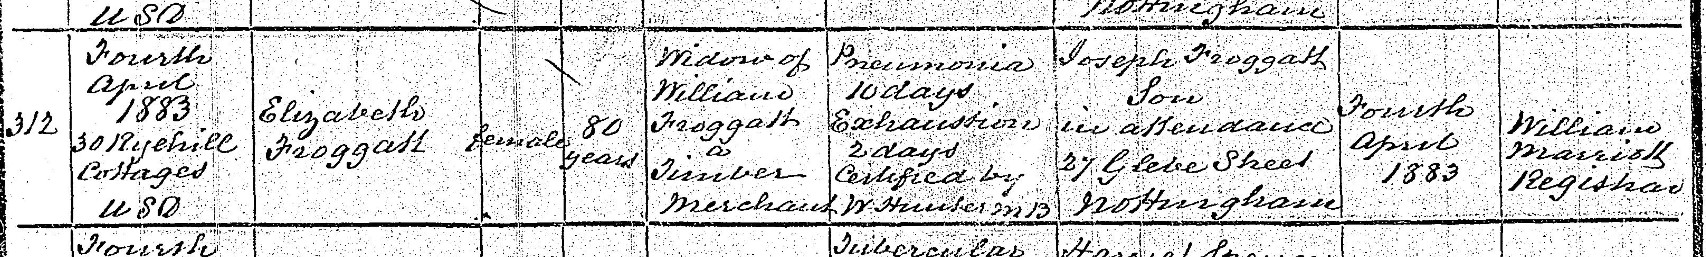 USD
Nottingham
312
Fourth
April
1883
30 Ryehill
Cottages
USD
Elizabeth
Froggatt
female
80
years
Widow of
William
Froggatt
a
Timber
Merchant
Pneumonia
10 days
Exhaustion
2 days
Certified by
W Hunter MB
Joseph Froggatt
Son
in attendance
27 Glebe Street
Nottingham
Fourth
April
1883
William
Marriott
Registrar
Fourth
Tubercular